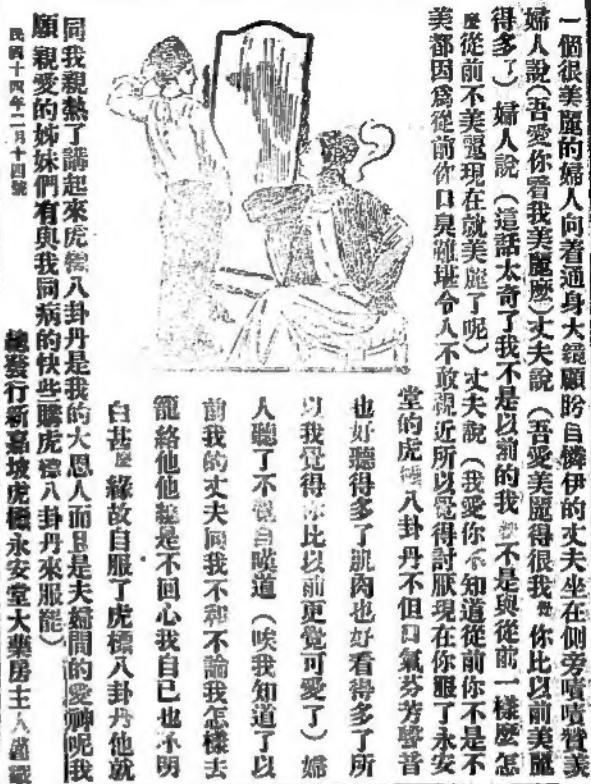 一個很美麗的婦人向着通身大鏡顧盼自憐伊的丈夫坐在側旁嘖嘖贊美
婦人說（吾愛你看我美麗麽）丈夫說（吾愛美麗得很我覺你比以前美麗
得多了）婦人說（這話太奇了我不是以前的我 不是與從前一樣麽怎
麽從前不美麗現在就美麗了呢）丈夫說（我愛你不知道從前你不是不
美都因爲從前你口臭難堪令人不敢親近所以覺得討厭現在你服了永安
堂的虎標八卦丹不但口氣芬芳聲音
也好聽得多了肌肉也好看得多了所
以我覺得你比以前更覺可愛了）婦
人聽了不覺自嘆道（唉我知道了以
前我的丈夫同我不和不論我怎樣去
籠絡他他總是不回心我自己也不明
白甚麽緣故自服了虎標八卦丹他就
同我親熱了講起來虎標八卦丹是我的大恩人而且是夫婦間的愛神呢我
願親愛的姊妹們有與我同病的快些購虎標八卦丹來服罷）
總發行新嘉坡虎標永安堂大藥房主人謹識
民國十四年二月十四號